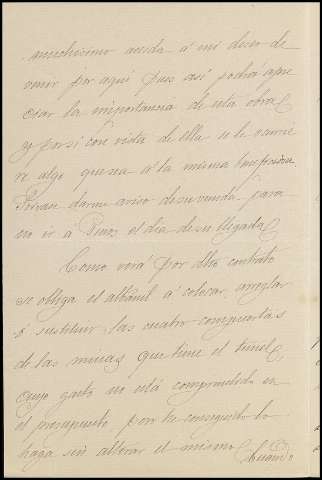 muchisimo acceda á mi deseo de
venir por aqui pues asi podrá apre
ciar la importancia de esta obra
y por si con vista de ella se le ocurrie
re algo que sea á la misma
Sirvase darme aviso de su venida para
no ir á Pinos el dia de su llegada
Como verá por dho contrato
se obliga el albañil á colocar, arreglar
ó sustituir, las cuatro compuertas
de las minas que tiene el tunel,
cuyo gasto no está comprendido en
el presupuesto por lo consiguiente lo
haga sin alterar el mismo.